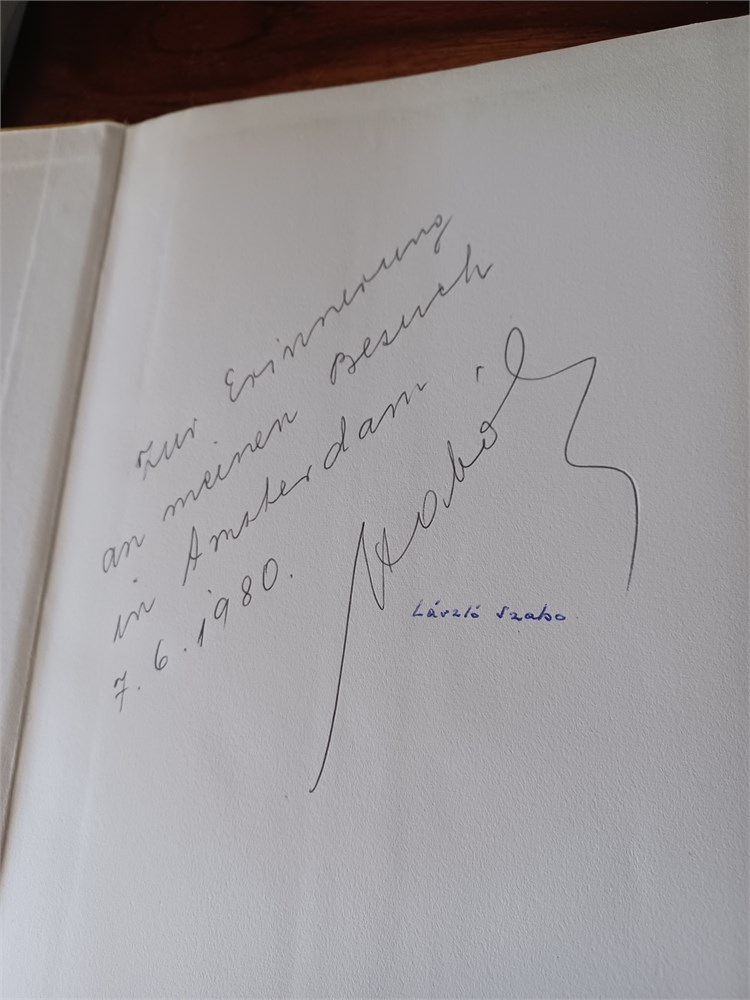 Zur Erinnerung
an meinen Besuch
in Amsterdam
7.6.1980.
Szabó L
László Szabo